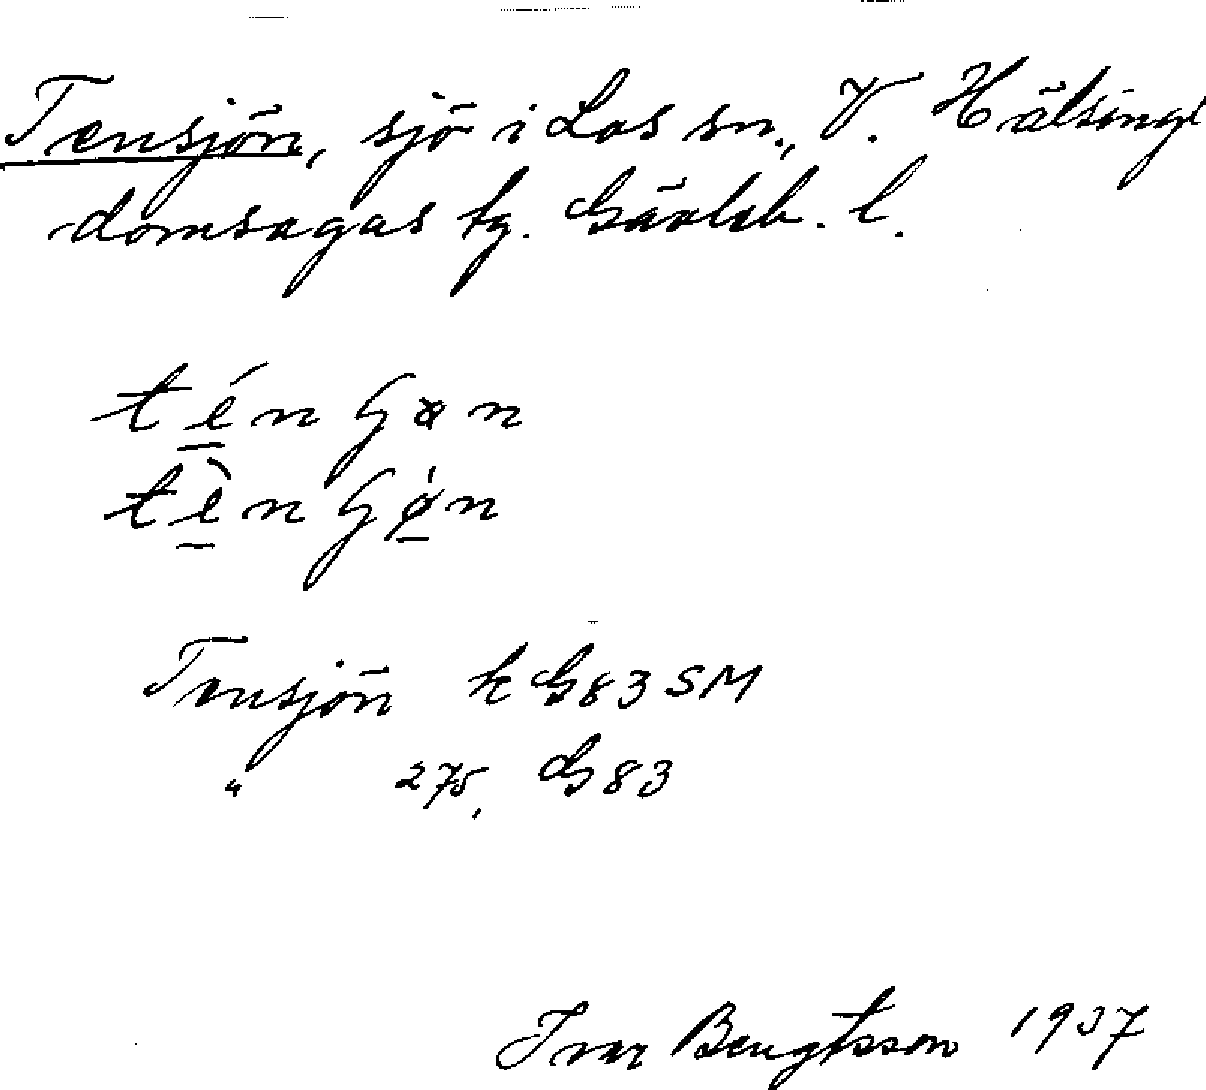 Tensjön, sjö i Los sn., V. Hälsingl
domsagas tg. Gävleb. l.
tén
tèn
Tensjön k G83 SM
" 275, G83
Ivar Bengtsson 1937